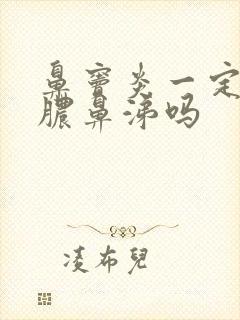 鼻窦炎一定
脓鼻涕吗
凌布兒